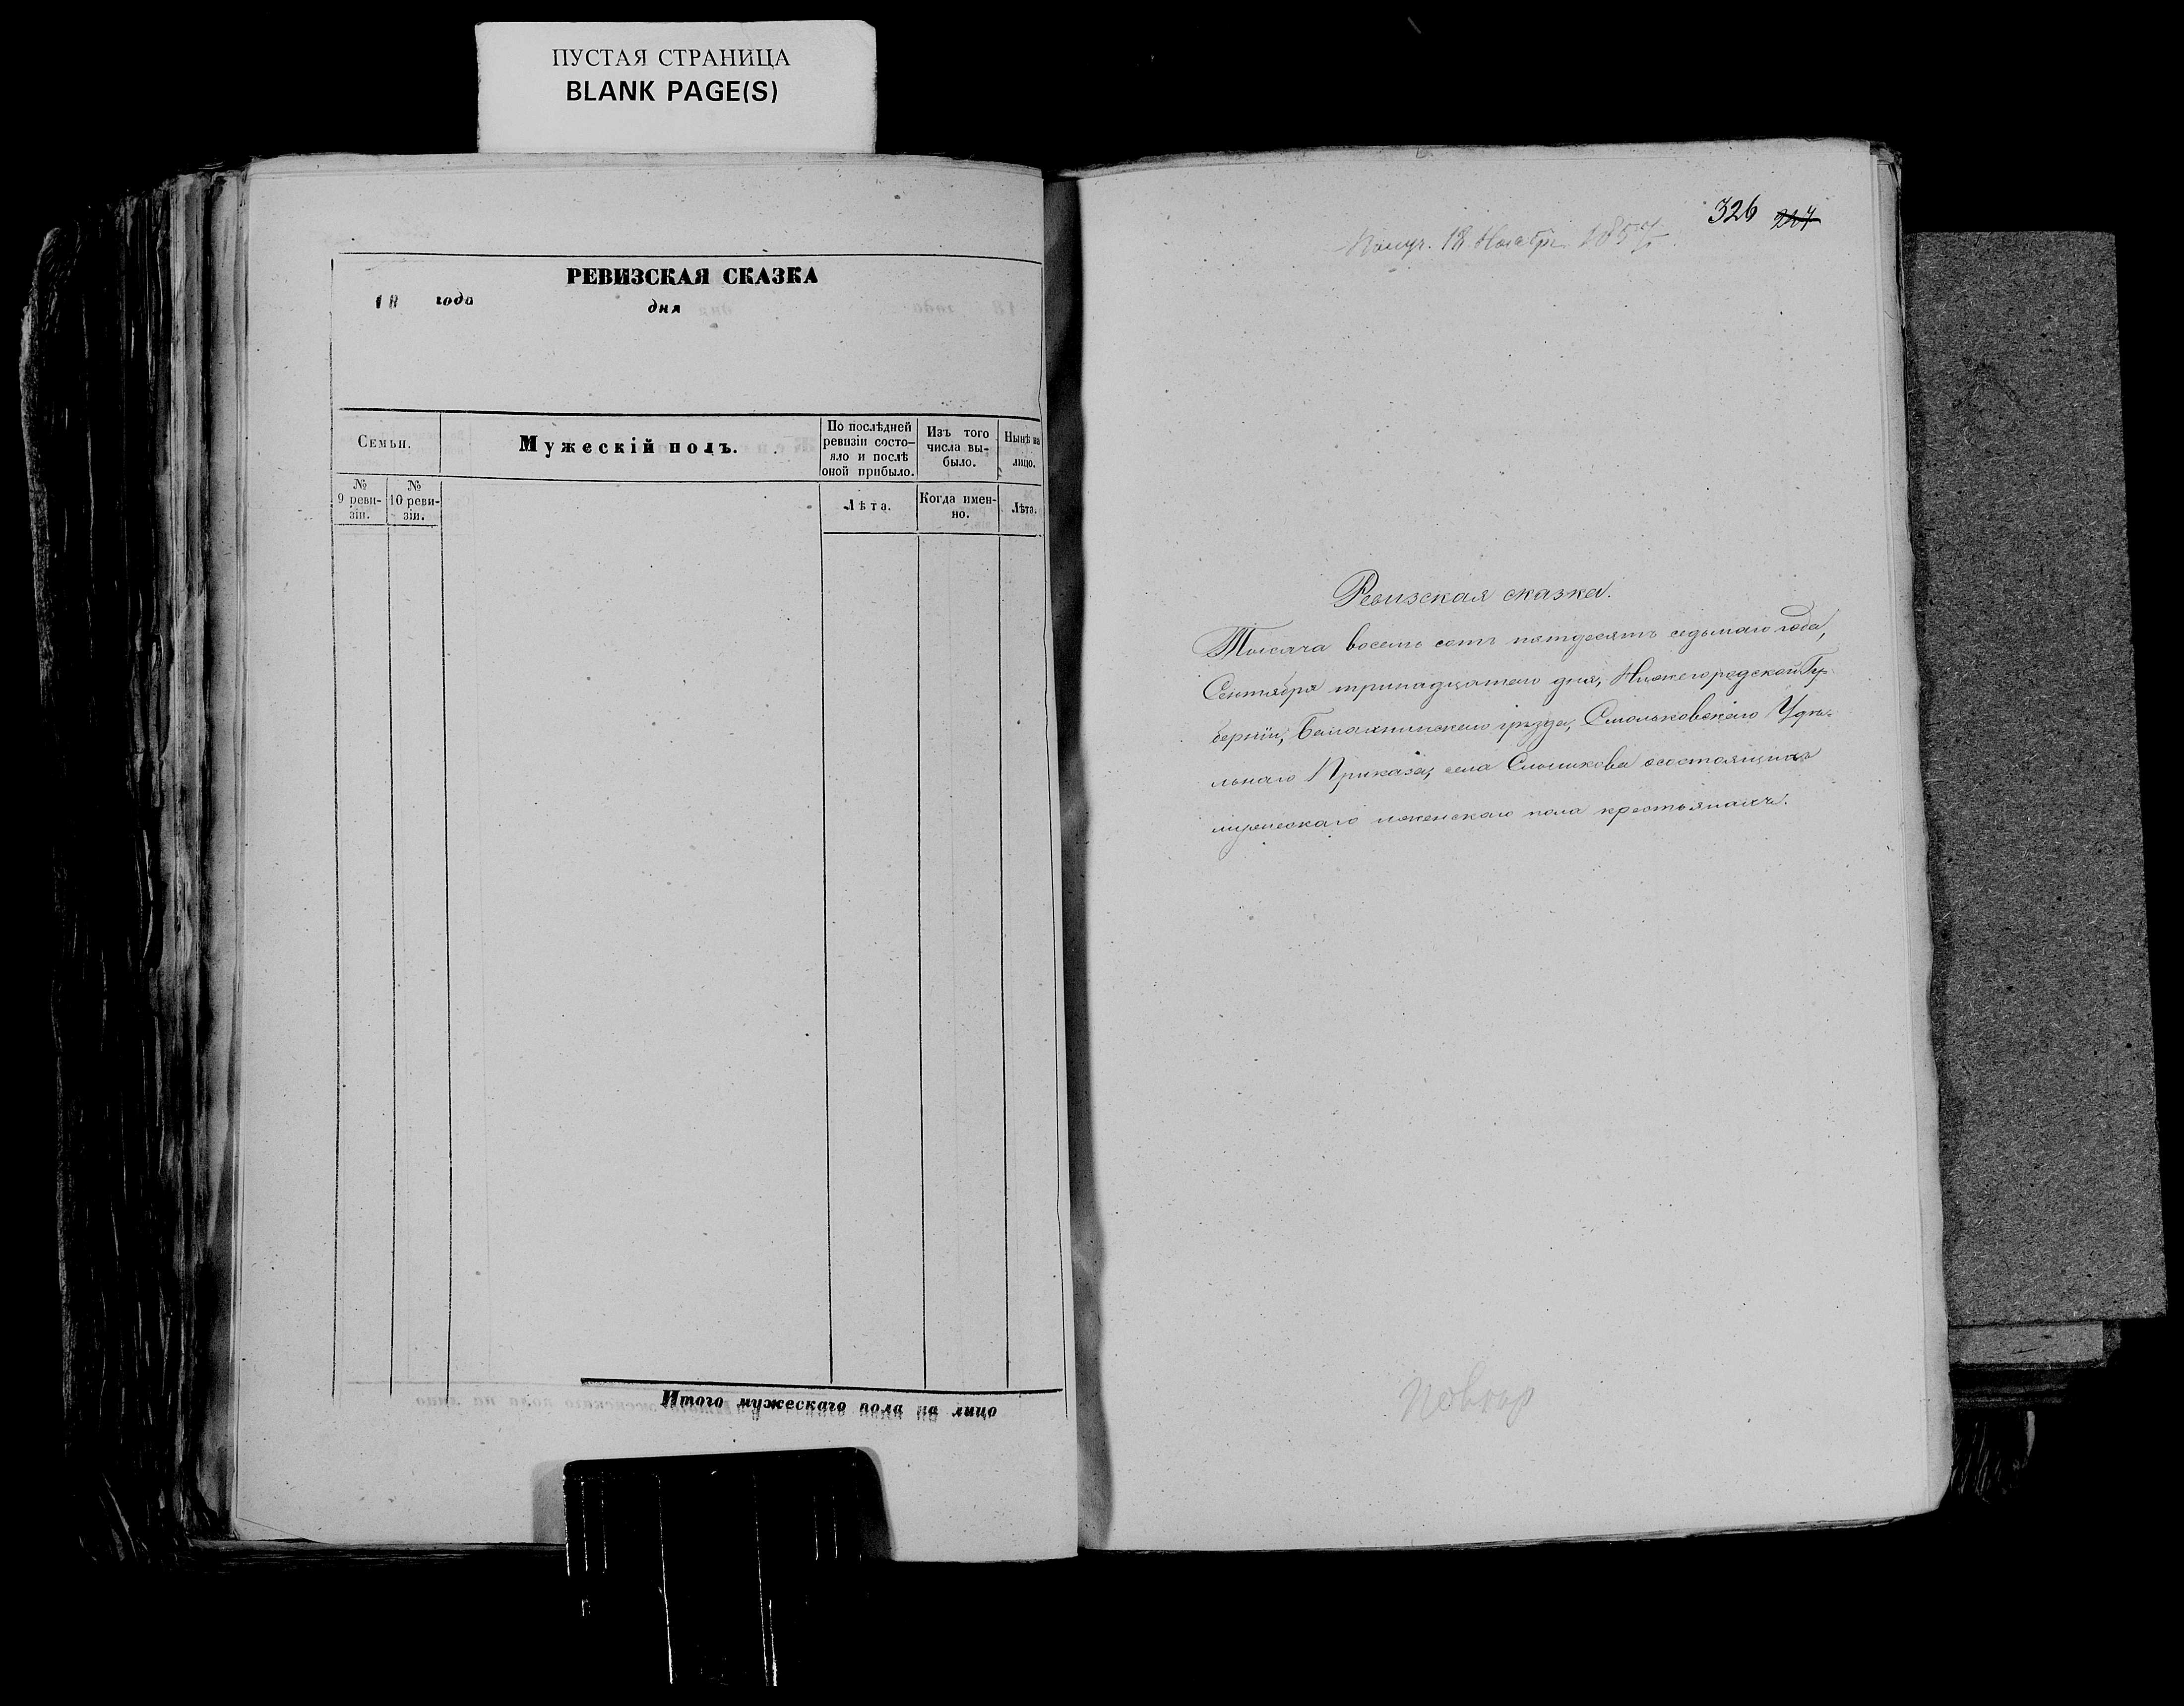 ПУСТАЯ СТРАНИЦА
BLANK PAGE(S)
РЕВИЗСКАЯ СКАЗКА
18 года дня
Семьи.
Мужескій полъ.
По послѣдней ревизіи состо-
яло и послѣ оной прибыло.
Изъ того числа вы-
было.
Нынѣ на лицо.
№ 9 реви-
зіи.
№ 10 реви-
зіи.
Лѣта.
Когда имен-
но.
Лѣта.
Итого мужескаго пола на лицо
326 
Получ. 18 Ноября 1857
Ревизская сказка.
Тысяча восемь сотъ пятдесятъ седьмаго года,
Сентября тринадцатаго дня, Нижегородской Гу-
берніи, Балахнинскаго уѣзда, Смольковскаго Удѣ-
льнаго Приказа, села осостоящихъ
мужескаго иженскаго пола крестьянахъ.